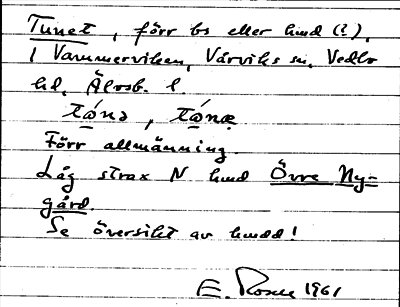 Tunet, förr bs eller hmd (?),
i Vammerviken, Vårviks sn, Vedbo
hd, Älvsb. l.
tọ́nə, tọ́næ
Förr allmänning.
Låg strax N hmd Övre Ny=
gård.
Se översikt av hmdd!
E. Rosell 1961